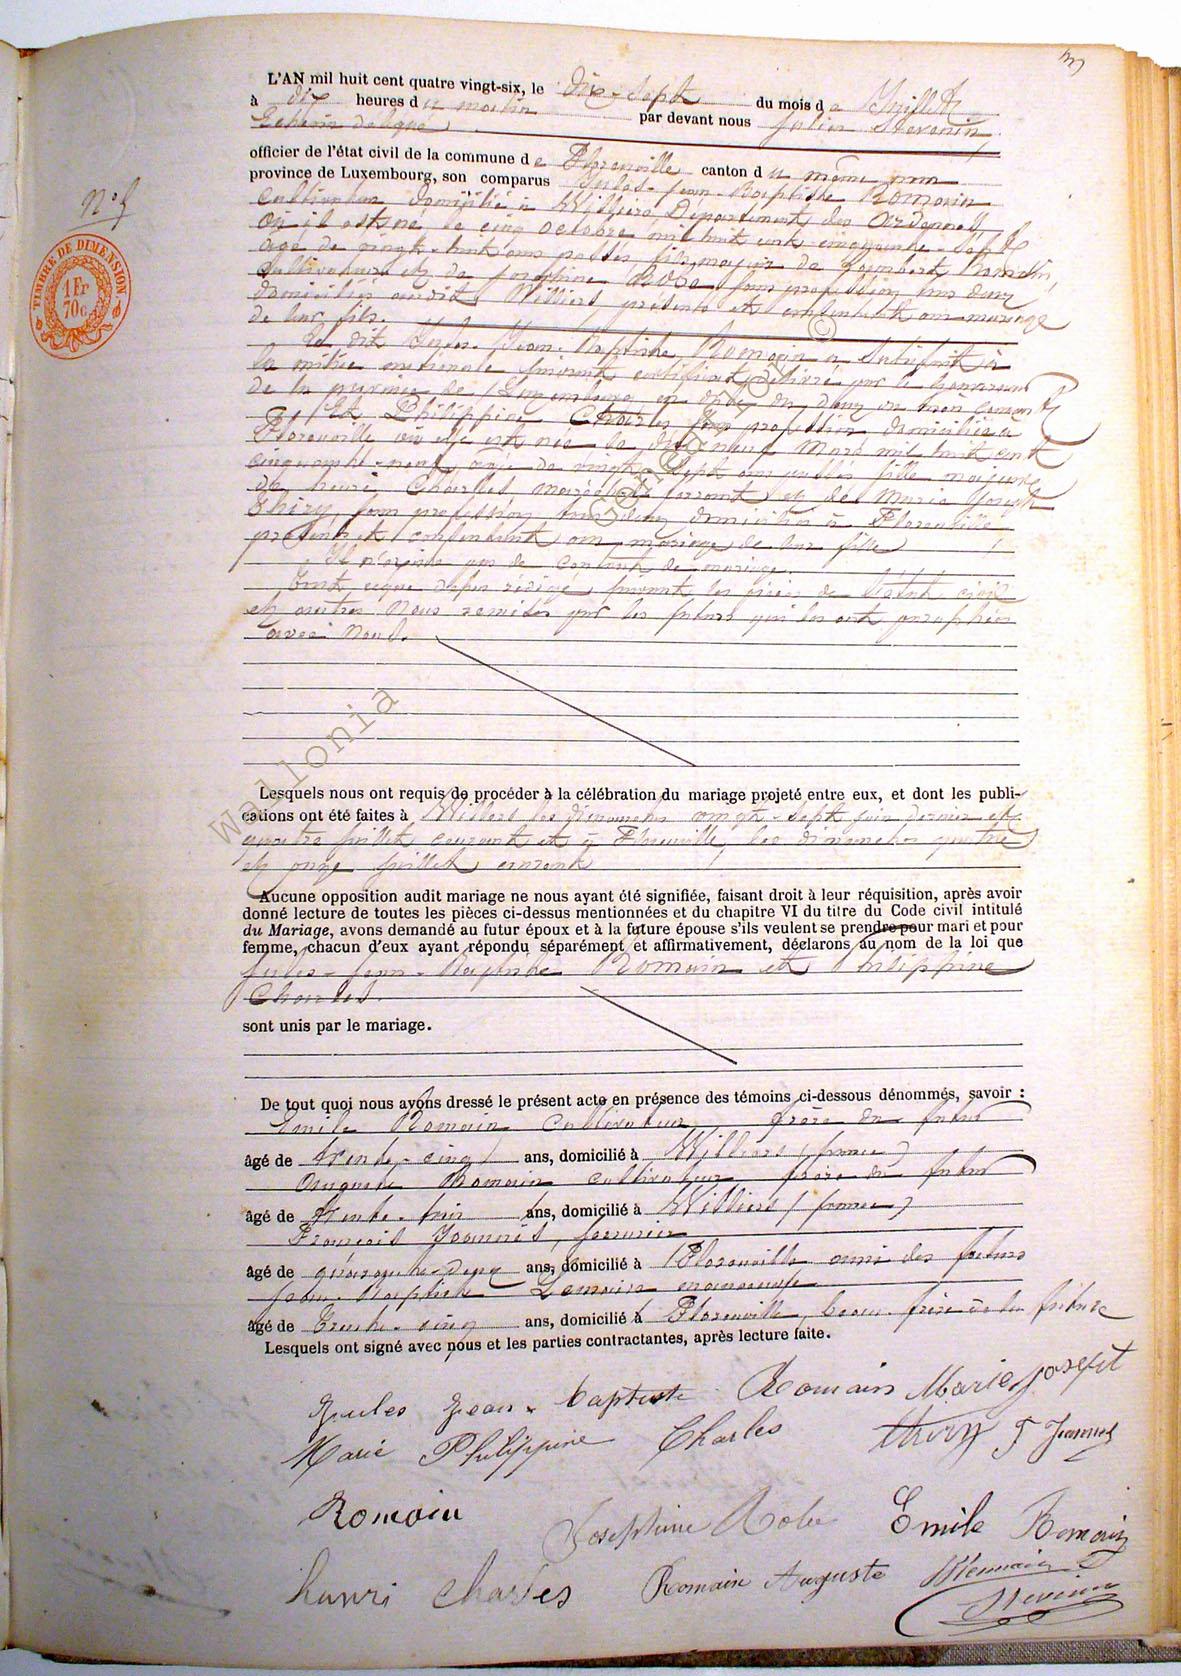 L'AN mil huit cent quatre vingt-six, le dix-sept du mois de Juillet
à dix heures du matin par devant nous Julien Stevenin
Echevin délégué
officier de l'état civil de la commune de Florenville canton du même nom
province de Luxembourg, son comparus Jules-Jean-Baptiste Romain
cultivateur domicilié à Williers Département des Ardennes,
où il est né, le cinq octobre mil huit cent cinquante-sept
âgé de vingt-huit ans passés, fils majeur de Lambert Romain,
cultivateur et de Joséphine Robe sans profession tous deux
domiciliés audit Williers, présents et consentants au mariage
de leur fils.
Le dit Jules-Jean-Baptiste Romain a satisfait à
la milice nationale suivant certificat délivré par le Gouverneur
de la province de Luxembourg en date du deux du mois courant
Et Philippine Charles sans profession domiciliée à
Florenville où elle est née le dix neuf Mars mil huit cent
cinquante-neuf âgée de vingt-sept ans passés fille majeure
de Henri Charles maréchal ferrant et de Marie Joseph
Thiry, sans profession tous deux domiciliés à Florenville
présents et consentants au mariage de leur fille
Il n'existe pas de contrat de mariage.
Tout ce que dessus rédigé suivant les pièces de l'état civil
et autres Nous remises par les futurs qui les ont paraphées
avec Nous.
N° 5
TIMBRE DE DIMENSION
1 Fr
70c
Lesquels nous ont requis de procéder à la célébration du mariage projeté entre eux, et dont les publi-
cations ont été faites à Williers les dimanches vingt-sept juin dernier et
quatre juillet courant et à Florenville, les dimanches quatre
et onze juillet courant
Aucune opposition audit mariage ne nous ayant été signifiée, faisant droit à leur réquisition, après avoir
donné lecture de toutes les pièces ci-dessus mentionnées et du chapitre VI du titre du Code civil intitulé
du Mariage, avons demandé au futur époux et à la future épouse s'ils veulent se prendre pour mari et pour
femme, chacun d'eux ayant répondu séparément et affirmativement, déclarons au nom de la loi que
Jules-Jean-Baptiste Romain et Philippine
Charles.
sont unis par le mariage.
De tout quoi nous avons dressé le présent acte en présence des témoins ci-dessous dénommés, savoir :
Emile Romain cultivateur frère du futur
âgé de trente-cinq ans, domicilié à Williers (france)
Auguste Romain cultivateur frère du futur
âgé de trente-trois ans, domicilié à Williers (france)
François Jeannès, serrurier
âgé de quarante-deux ans, domicilié à Florenville ami des futurs
Jean-Baptiste Lemaire
âgé de Trente-cinq ans, domicilié à Florenville, beau-frère de la future
Lesquels ont signé avec nous et les parties contractantes, après lecture faite.
Jules Jean-baptiste Romain Marie Joseph
Marie Philippine Charles thiry F Jeannes
Romain Josephine Robe Emile Romain
henri Charles Romain Auguste
Stevenin
Wallonia Genealogy ©